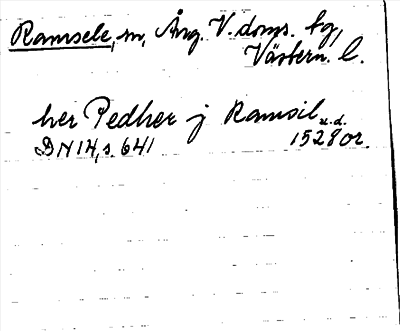 Ramsele, m, Ång. V. doms. tg,
Västern. l.
her Pedher j Ramsil u.d.
DN 14, s. 641 1528 or.